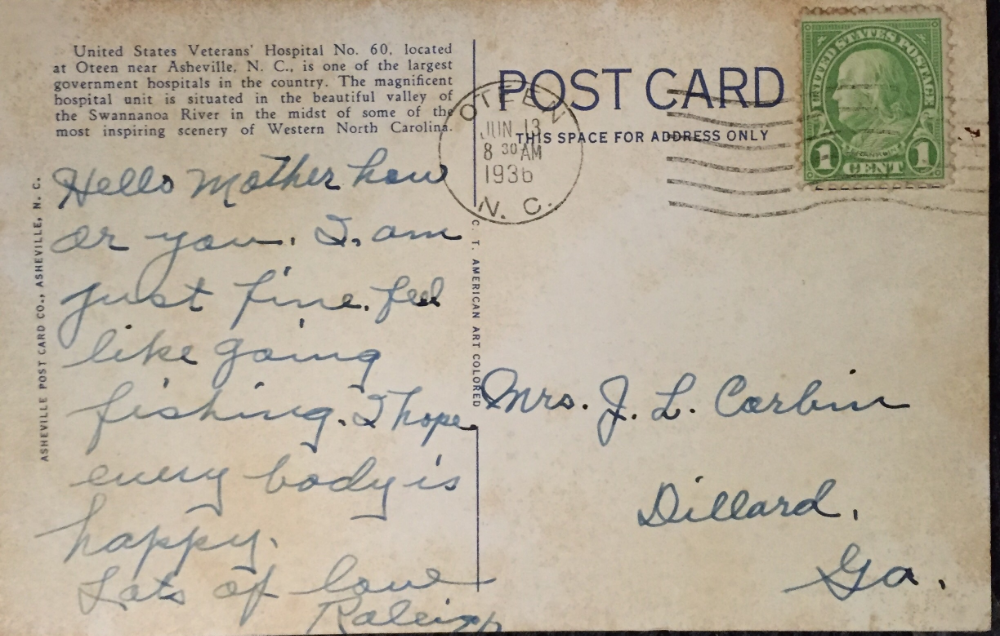 United States Veterans' Hospital No. 60, located
at Oteen near Asheville, N. C., is one of the largest
government hospitals in the country. The magnificent
hospital unit is situated in the beautiful valley of
the Swannanoa River in the midst of some of the
most inspiring scenery of Western North Carolina.
POST CARD
THIS SPACE FOR ADDRESS ONLY
UNITED STATES POSTAGE
1 CENT 1
OTEEN
JUN 13
8 30 AM
1936
N. C.
ASHEVILLE POST CARD CO., ASHEVILLE, N. C.
C. T. AMERICAN ART COLORED
Hello Mother how
or you. I. am
just fine. feel
like going
fishing. I hope
every body is
happy.
Lots of love
Raleigh
Mrs. J. L. Corbin
Dillard,
Ga.